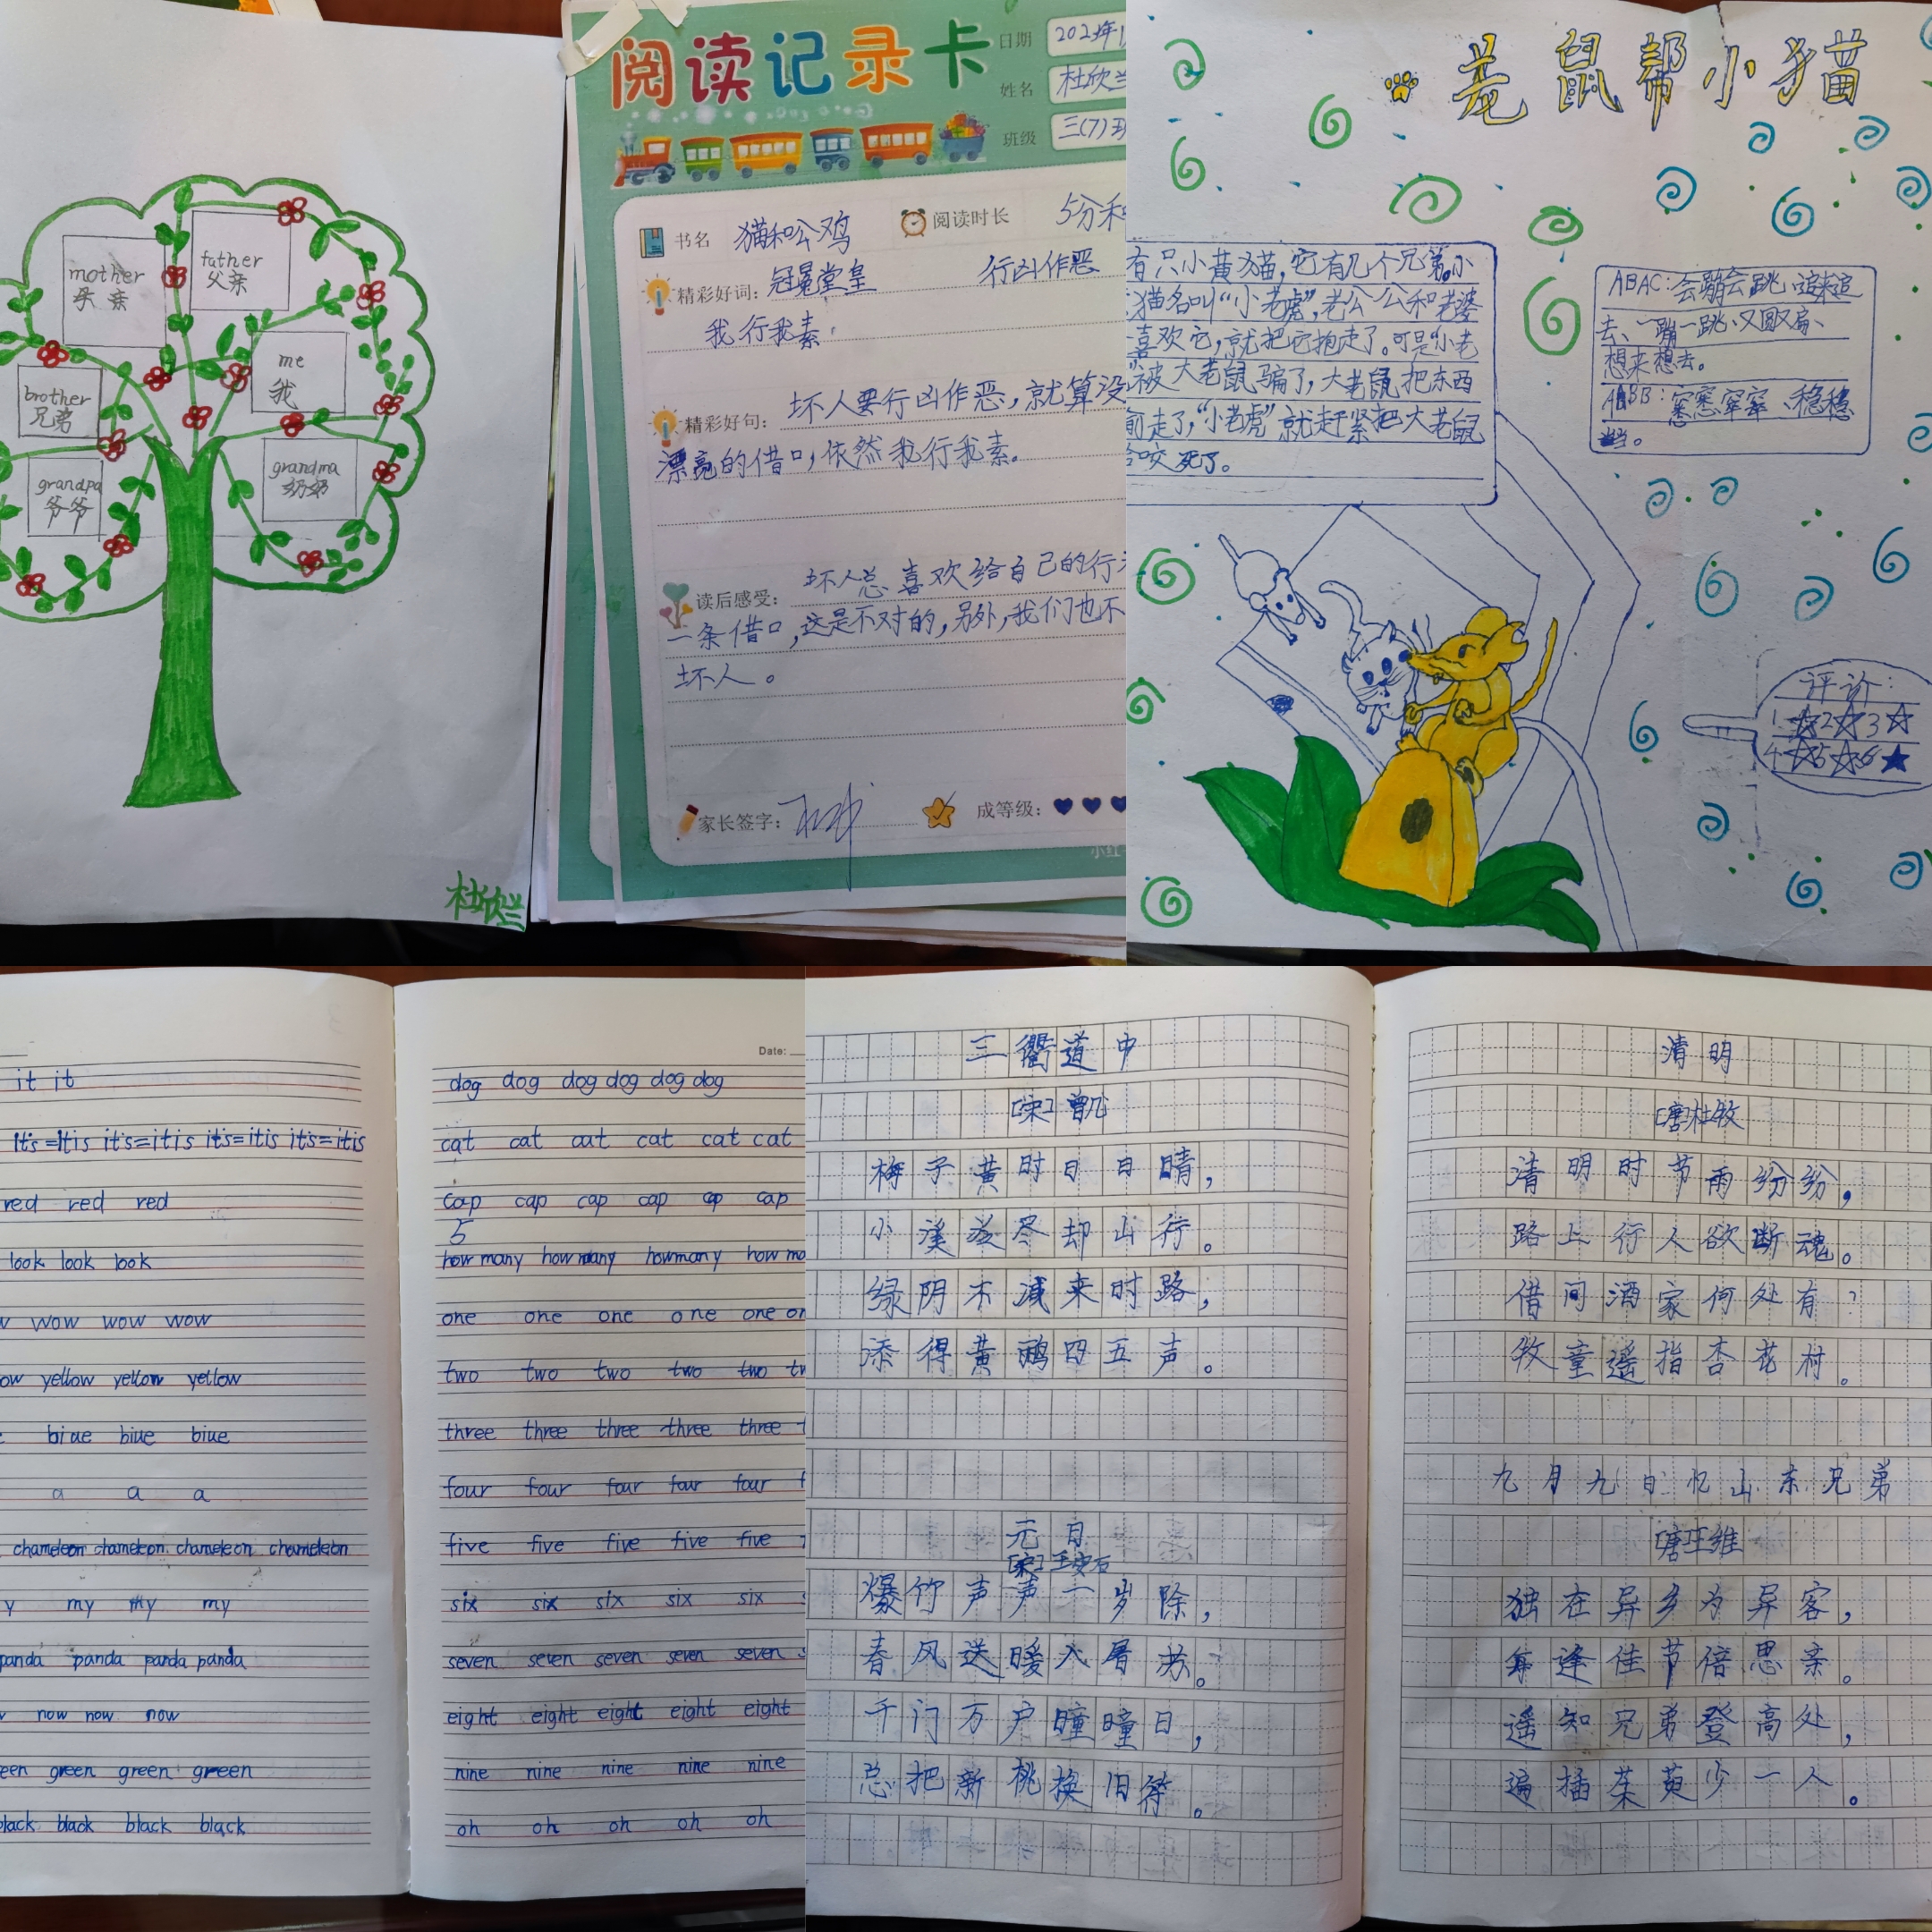 mother
母亲
father
父亲
me
我
brother
兄弟
grandma
奶奶
grandpa
爷爷
杜欣兰
阅读记录卡
日期
姓名 杜欣兰
班级 三(7)班
书名 猫和公鸡 阅读时长 5分
精彩好词: 冠冕堂皇 行凶作恶
我行我素
精彩好句: 坏人要行凶作恶,就算没
漂亮的借口,依然我行我素。
读后感受: 坏人总喜欢给自己的行
一条借口,这是不对的,另外,我们也不
坏人。
家长签字: 成等级:
鼠帮小猫
有只小黄猫,它有几个兄弟。小
猫名叫“小老虎”,老公公和老婆
喜欢它,就把它抱走了。可是“小老
被大老鼠骗了,大老鼠把东西
偷走了,“小老虎”就赶紧把大老鼠
给咬死了。
ABAC:会蹦会跳、追来追
去、一蹦一跳、又圆又扁、
想来想去。
ABB:窸窸窣窣、稳稳
当当。
评价:
1 ☆ 2 ☆ 3 ☆
4 ☆ 5 ☆ 6 ★
it it
It's=It is it's=it is it's=it is it's=it is
red red red
look look look
wow wow wow
yellow yellow yellow
biue biue biue
a a a
chameleon chameleon chameleon chameleon
my my my
panda panda panda panda
now now now
green green green
black black black black
Date:
dog dog dog dog dog dog
cat cat cat cat cat cat
cap cap cap cap cap cap
5
how many how many how many how
one one one one one
two two two two two
three three three three three
four four four four four
five five five five five
six six six six six
seven seven seven seven seven
eight eight eight eight eight
nine nine nine nine nine
oh oh oh oh oh
三衢道中
[宋]曾几
梅子黄时日日晴,
小溪泛尽却山行。
绿阴不减来时路,
添得黄鹂四五声。
元日
[宋]王安石
爆竹声声一岁除,
春风送暖入屠苏。
千门万户曈曈日,
总把新桃换旧符。
清明
[唐]杜牧
清明时节雨纷纷,
路上行人欲断魂。
借问酒家何处有?
牧童遥指杏花村。
九月九日忆山东兄弟
[唐]王维
独在异乡为异客,
每逢佳节倍思亲。
遥知兄弟登高处,
遍插茱萸少一人。